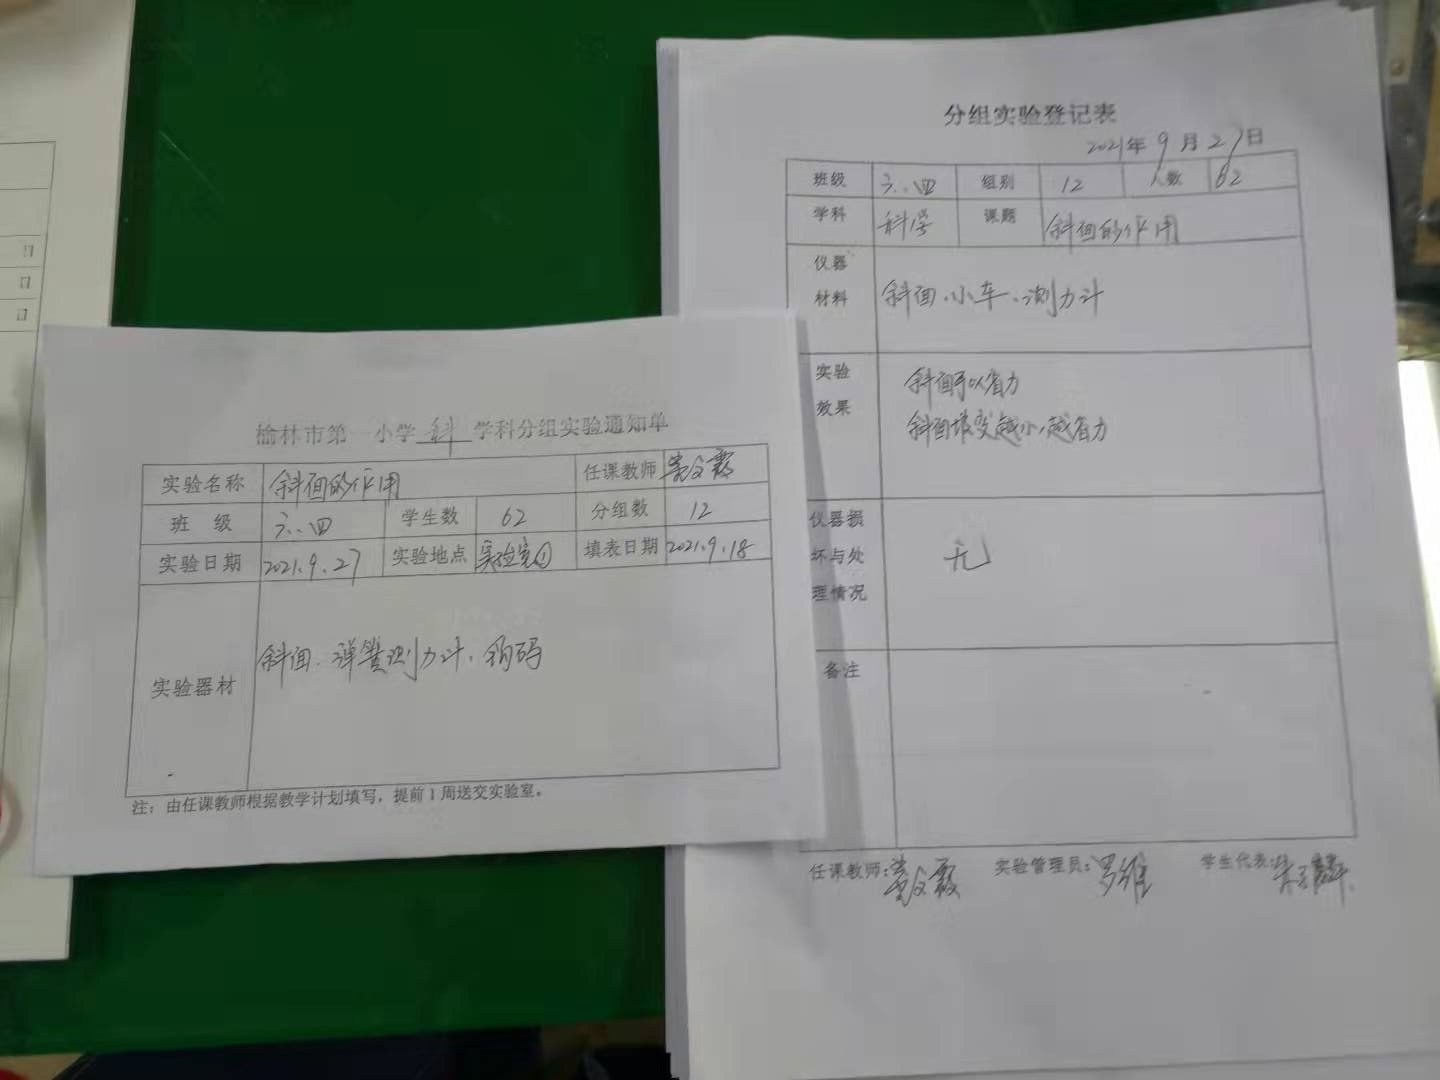 榆林市第一小学 科 学科分组实验通知单
实验名称 斜面的作用 任课教师
班 级 六.四 学生数 62 分组数 12
实验日期 2021.9.27 实验地点 实验室① 填表日期 2021.9.18
实验器材 斜面、弹簧测力计、钩码
注：由任课教师根据教学计划填写，提前1周送交实验室。
分组实验登记表
2021年 9 月 27日
班级 六.四 组别 12 人数 62
学科 科学 课题 斜面的作用
仪器
材料 斜面、小车、测力计
实验 斜面可以省力
效果 斜面坡度越小,越省力
仪器损
坏与处 无
理情况
备注
任课教师: 实验管理员:罗维 学生代表: